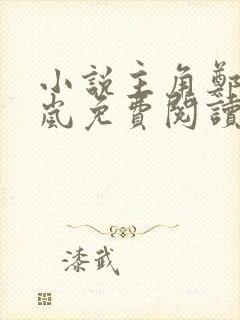 小说主角鄭
嵐免費閱讀
漆武